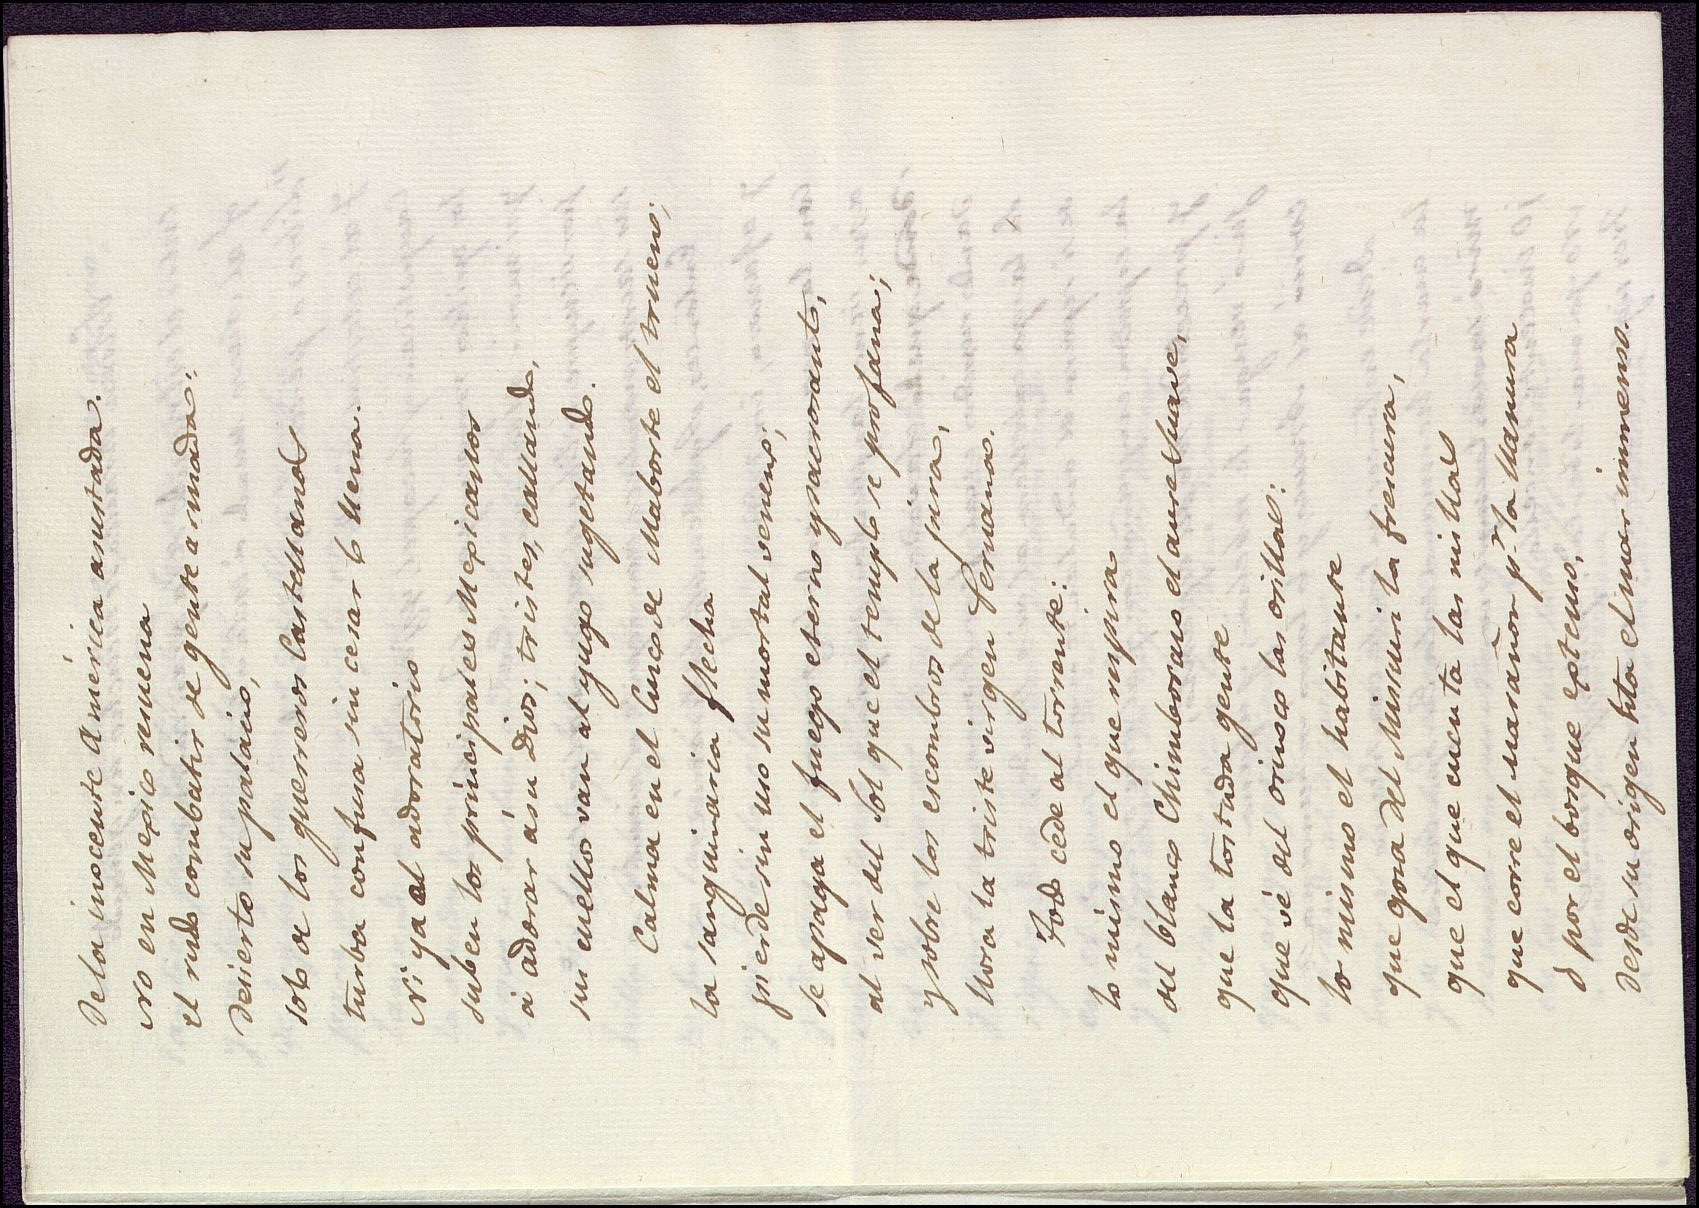 De la inocente América asustada.
No en Megico resuena
el rudo combatir de gente armada:
desierto su palacio,
solo de los guerreros Castellanos
turba confusa sin cesar lo llena.
Ni ya al adoratorio
suben los principales Mexicanos
á adorar a su Dios; tristes, callando,
su cuello van al yugo sugetando.
Calma en el Cuzco de Maborte el trueno;
la sanguinaria flecha
pierde sin uso su mortal veneno;
se apaga el fuego eterno y sacrosanto,
al ver del Sol que el templo se profana;
y sobre los escombros de la pira,
llora la triste virgen Peruana.
Todo cede al torrente:
lo mismo el que respira
del blanco Chimborazo el aure suave,
que la tostada gente
que vé del orinoco las orillas:
lo mismo el habitante
que goza del Missuri la frescura,
que el que cuenta las millas
que corre el marañon pr. la llanura
ó por el bosque extenso,
desde su origen hta el mar inmenso.